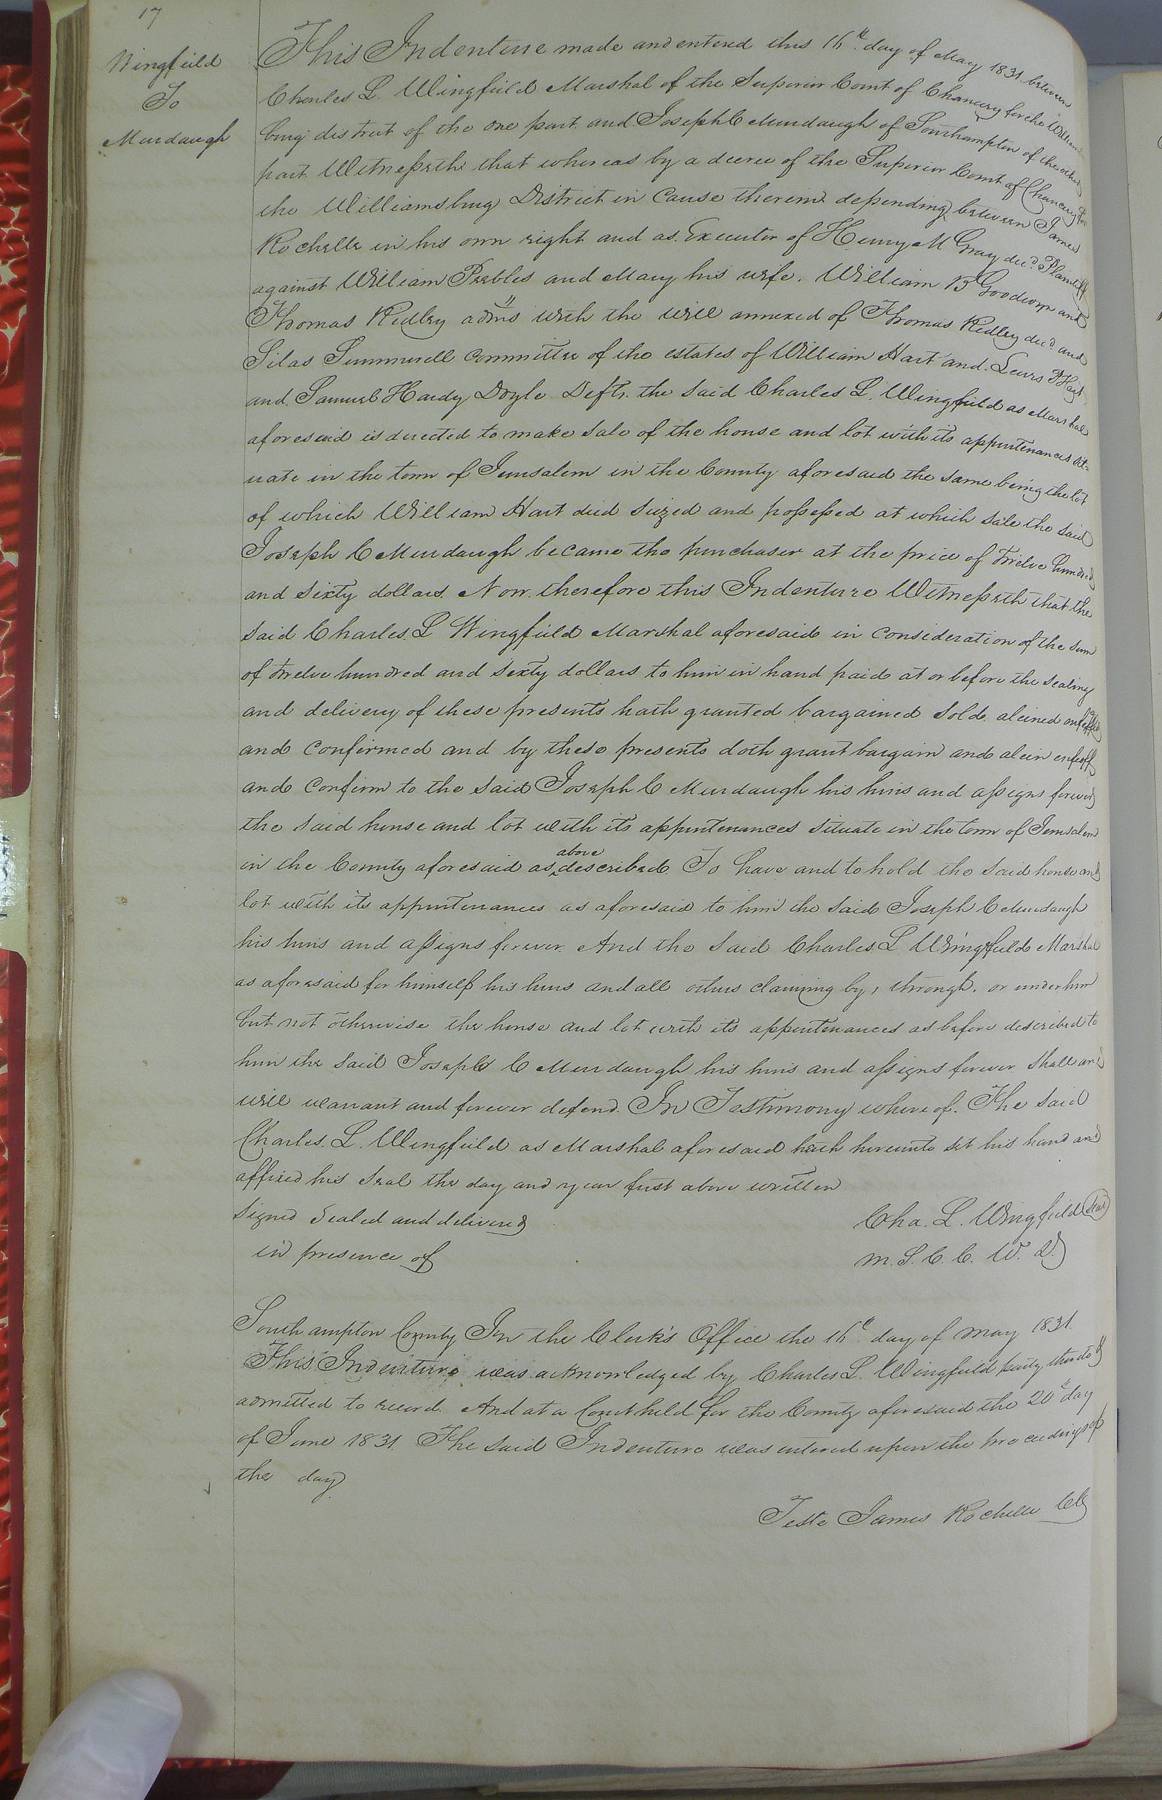 17
Wingfield
To
Murdaugh
This Indenture made and entered this 16th day of May 1831 between
Charles L. Wingfield Marshal of the Superior Court of Chancery for the Williams
burg district of the one part and Joseph C Murdaugh of Southampton of the other
part Witnesseth that whereas by a decree of the Superior Court of Chancery for
the Williamsburg District in Cause therein depending between James
Rochelle in his own right and as Executor of Henry M Gray decd. Plaintiff
against William Peebles and Mary his wife. William B Goodwyn and
Thomas Ridley admrs with the will annexed of Thomas Ridley decd and
Silas Summerell Committee of the estates of William Hart and
and Samuel Hardy Doyle Defts. the said Charles L. Wingfield as Marshal
aforesaid is directed to make sale of the house and lot with its appurtenances sit-
uate in the town of Jerusalem in the County aforesaid the same being the lot
of which William Hart died siezed and possessed at which sale the said
Joseph C Murdaugh became the purchaser at the price of twelve hundred
and sixty dollars. Now therefore this Indenture Witnesseth that the
said Charles L Wingfield Marshal aforesaid in consideration of the sum
of twelve hundred and sixty dollars to him in hand paid at or before the sealing
and delivery of these presents hath granted bargained sold, aliened enfeoffed
and confirmed and by these presents doth grant bargain and alien enfeoff
and confirm to the said Joseph C Murdaugh his heirs and assigns forever
the said house and lot with its appurtenances situate in the town of Jerusalem
in the County aforesaid as above described To have and to hold the said house and
lot with its appurtenances as aforesaid to him the said Joseph C Murdaugh
his heirs and assigns forever And the said Charles L Wingfield Marshal
as aforesaid for himself his heirs and all others claiming by, through, or under him
but not otherwise the house and lot with its appurtenances as before described to
him the said Joseph C Murdaugh his heirs and assigns forever shall and
will warrant and forever defend. In Testimony whereof. The said
Charles L. Wingfield as Marshal aforesaid hath hereunto set his hand and
affixed his seal the day and year first above written
Signed Sealed and delivered
in presence of
Cha. L. Wingfield Seal
M. S. C. C. W. D.
Southampton County In the Clerk's Office the 16th day of May 1831.
This Indenture was acknowledged by Charles L. Wingfield party thereto &
admitted to record. And at a Court held for the County aforesaid the 20th day
of June 1831 The said Indenture was entered upon the proceedings of
the day
Teste James Rochelle Clk